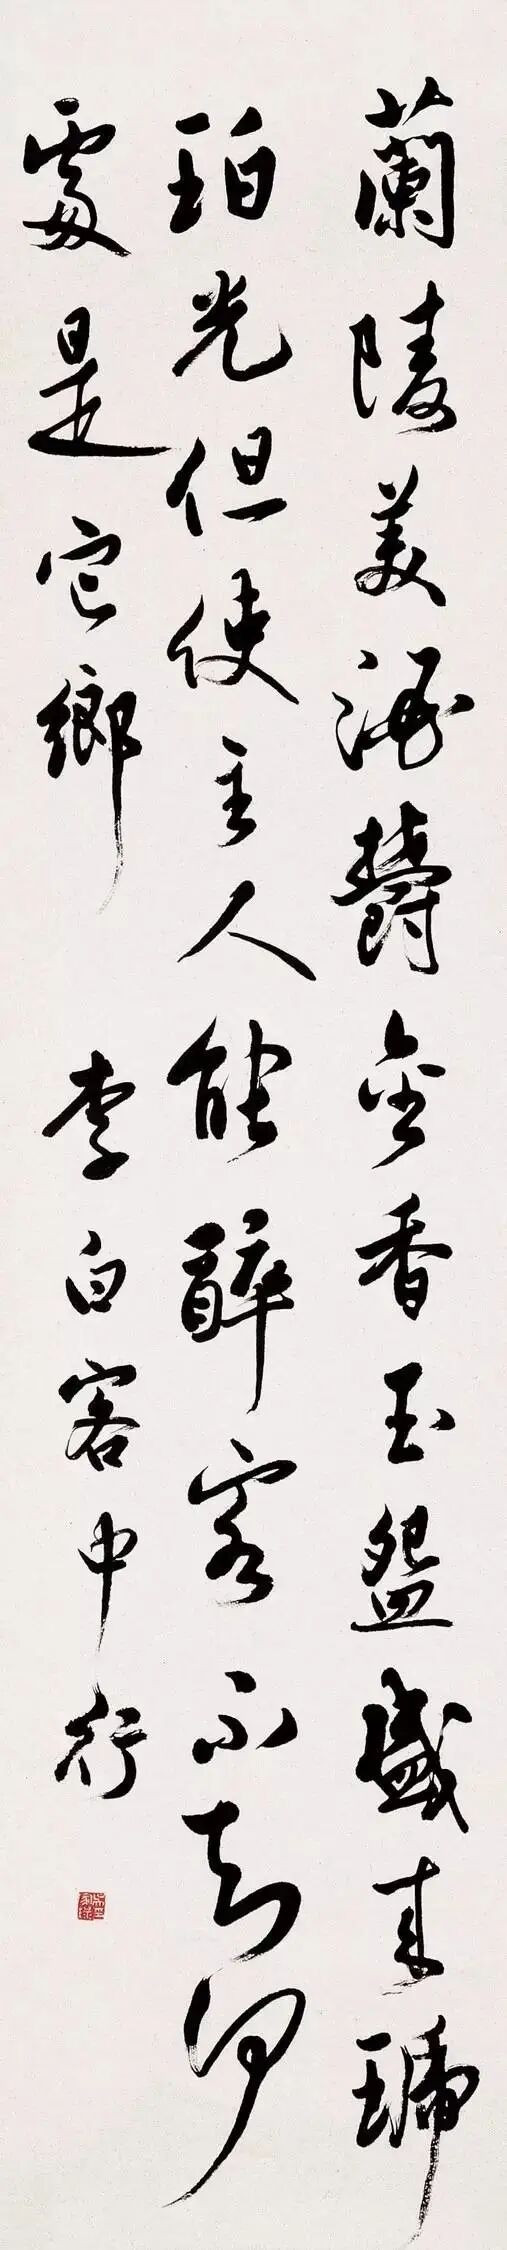 蘭陵美酒欝金香玉盌盛来琥
珀光但使主人能醉客不知何
處是它鄉 李白客中行